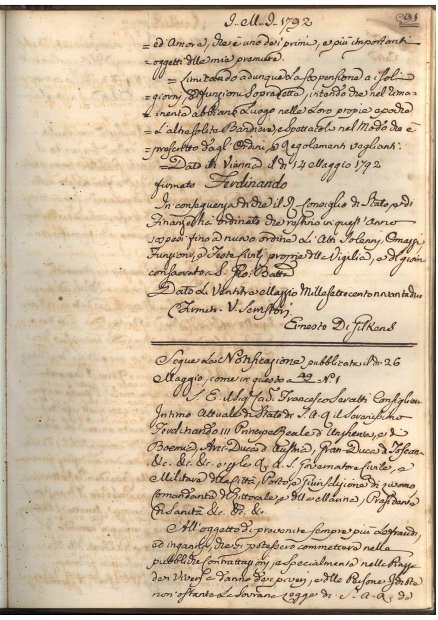 J. M. J. 1792
291
=ed Amore, che è uno dei primi, e più importanti
oggetti delle mie premure.
=Limitando adunque la sospensione a i soli
=giorni, e funzioni sopradetta, intendo che nel rima-
=nente abbiano luogo nelle loro proprie epoche
=Le solite Bandiere, e Spettacoli nel Modo che è
=prescritto dagl' Ordini, e Regolamenti veglianti:
=Dato in Vienna il dì 14 Maggio 1792
firmato Ferdinando
In conseguenza di che il Consiglio di Stato, e di
Finanze ha ordinato che restino in quest' Anno
sospesi fino a nuovo ordine
Funzioni, e Feste della Vigilia, e di
S. Gio. Batta
Dato Li Ventitre Maggio Millesettecentonovantadue
Firmato: V.
Ernesto Di Gilkens
Segue La Notificazione pubblicata il dì 26
Maggio, come in questo a 49 N. 1
S. E. il Sig. Francesco Seratti Consiglier
Intimo Attuale di Stato di S. A. R. il Serenissimo
Ferdinando III Principe Reale d'Ungheria, e di
Boemia, Arci-Duca d'Austria, Gran-Duca di Toscana
&c. &c. &c. e per la R. A. S. Governatore Civile, e
Militare della Città, Porto, e Giurisdizione di Livorno
Comandante del Littorale, e della Marina, Presidente
di Sanità &c. &c. &c.
All' oggetto di prevenire sempre più le fraudi,
ed inganni, che si potessero commettere nelle
pubbliche Contrattazioni, e specialmente nelle Piazze
dei Viveri e danno dei poveri, e delle Persone Idiote
non ostante Le Sovrane Legge di S. A. R. de